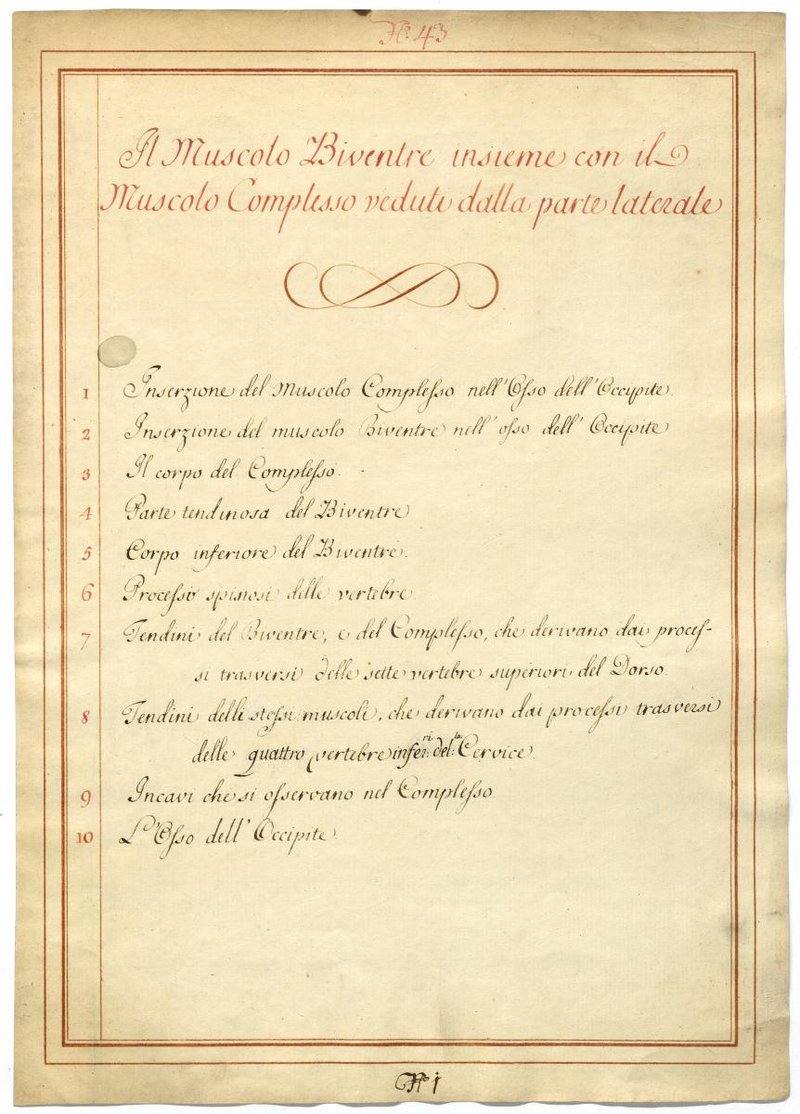 N.º 43
Il Muscolo Biventre insieme con il
Muscolo Complesso veduti dalla parte laterale
1 Inserzione del Muscolo Complesso nell'Osso dell'Occypite.
2 Inserzione del muscolo Biventre nell'osso dell'Occypite
3 Il corpo del Complesso.
4 Parte tendinosa del Biventre
5 Corpo inferiore del Biventre.
6 Processi spinosi delle vertebre.
7 Tendini del Biventre, e del Complesso, che derivano dai proces-
si trasversi delle sette vertebre superiori del Dorso.
8 Tendini delli stessi muscoli, che derivano dai processi trasversi
delle quattro vertebre infer.ri del.la Cervice.
9 Incavi che si osservano nel Complesso
10 L'Osso dell'Occipite.